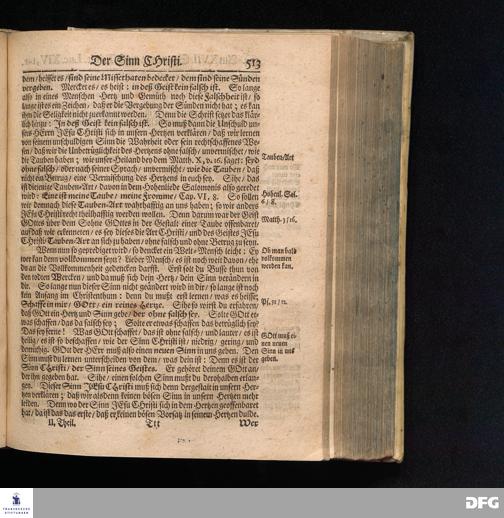 Der Sinn CHristi.
513
dem / heisset es / sind seine Missethaten bedecket / dem sind seine Sünden
vergeben. Mercket es / es heist: in deß Geist kein falsch ist. So lange
also in eines Menschen Hertz und Gemüth noch diese Falschheit ist / so
lange ist es ein Zeichen / daß er die Vergebung der Sünden nicht hat; es kan
ihm die Seligkeit nicht zuerkannt werden. Denn die Schrifft setzt das klär-
lich hinzu: In deß Geist kein falsch ist. So muß dann die Unschuld un-
sers HErrn JEsu Christi sich in unsern Hertzen verklären / daß wir lernen
von seinem unschuldigen Sinn die Wahrheit oder sein rechtschaffenes We-
sen / daß wir die Unbetrüglichkeit des Hertzens ohne falsch / unvermischet / wie
die Tauben haben; wie unser Heiland bey dem Matth. X, v. 16. saget: seyd
ohne falsch / oder nach seiner Sprach / unvermischt / wie die Tauben / daß
nicht ein Betrug / eine Vermischung des Hertzens in euch sey. Sihe / das
ist diejenige Tauben-Art / davon in dem Hohenliede Salomonis also geredet
wird: Eine ist meine Taube / meine Fromme / Cap. VI, 8. So sollen
wir demnach diese Tauben-Art wahrhafftig an uns haben; so wir anders
JEsu Christi recht theilhafftig werden wollen. Denn darum war der Geist
GOttes über dem Sohne GOttes in der Gestalt einer Taube offenbaret /
auf daß wir erkenneten / es sey dieses die Art Christi / und des Geistes JEsu
Christi Tauben-Art an sich zu haben / ohne falsch und ohne Betrug zu seyn.
Wenn nun so geprediget wird / so dencket ein Welt-Mensch leicht: Ey
wer kan denn vollkommen seyn? Lieber Mensch / es ist noch weit davon / ehe
du an die Vollkommenheit gedencken darffst. Erst solt du Busse thun von
den todten Wercken / und da muß sich dein Hertz / dein Sinn verändern in
dir. So lange nun dieser Sinn nicht geändert wird in dir / so lange ist noch
kein Anfang im Christenthum: denn du must erst lernen / was es heisse:
Schaffe in mir / GOtt / ein reines Hertze. Sihe so wirst du erfahren /
daß GOtt ein Hertz und Sinn gebe / der ohne falsch sey. Solte GOtt et-
was schaffen / das da falsch sey; Solte er etwas schaffen das betrüglich sey?
Das sey ferne! Was GOtt schaffet / das ist ohne falsch / und lauter / es ist
heilig / es ist so beschaffen / wie der Sinn CHristi ist / niedrig / gering / und
demütig. GOtt der HErr muß also einen neuen Sinn in uns geben. Den
Sinn must du lernen unterscheiden von dem / was dein ist: Denn es ist der
Sinn CHristi / der Sinn seines Geistes. Er gehöret deinem GOtt an /
der ihn gegeben hat. Sihe / einen solchen Sinn must du derohalben erlan-
gen. Dieser Sinn JEsu Christi muß sich denn dergestalt in unsern Her-
tzen verklären; daß wir alsdenn keinen bösen Sinn in unsern Hertzen mehr
leiden. Denn wo der Sinn JEsu CHristi sich in dem Hertzen geoffenbaret
hat / da ist das das erste / daß er keinen bösen Vorsatz in seinem Hertzen dulde.
II. Theil.
Ttt
Wer
Tauben-Art
Hohenl. Sal.
6 / 8.
Matth. 3 / 16.
Ob man bald
vollkommen
werden kan.
Ps. 51 / 12.
GOtt muß ei-
nen neuen
Sinn in uns
geben.
FRANCKESCHE
STIFTUNGEN
DFG